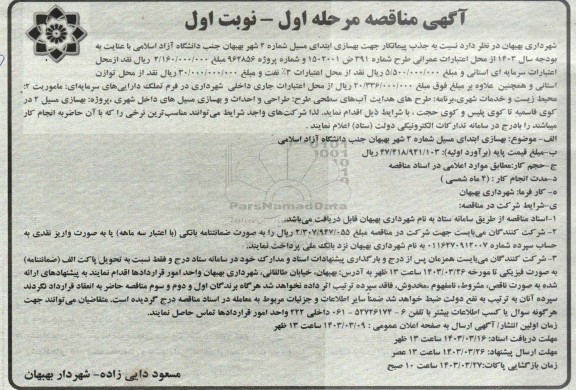 آگهی مناقصه مرحله اول – نوبت اول
شهرداری بهبهان در نظر دارد نسبت به جذب پیمانکار جهت بهسازی ابتدای مسیل شماره ۲ شهر بهبهان جنب دانشگاه آزاد اسلامی با عنایت به
بودجه سال ۱۴۰۳ از محل اعتبارات عمرانی طرح شماره ۳۹۱ ض ۱۵۰۲۰۰۱ و شماره پروژه ۹۶۳۸۵۶ مبلغ ۲/۱۶۰/۰۰۰/۰۰۰ ریال نقد ازمحل
اعتبارات سرمایه ای استانی و مبلغ ۵/۵۰۰/۰۰۰/۰۰۰ ریال نقد از محل اعتبارات ۳٪ نفت و مبلغ ۳۰/۰۰۰/۰۰۰/۰۰۰ ریال نقد از محل توازن
استانی و همچنین علاوه بر مبلغ فوق مبلغ ۲۰/۳۳۶/۰۰۰/۰۰۰ ریال از محل اعتبارات جاری داخلی شهرداری در فرم تملک دارایی‌های سرمایه‌ای: ماموریت ۲:
محیط زیست و خدمات شهری،برنامه: طرح های هدایت آب‌های سطحی طرح: طراحی و احداث و بهسازی مسیل های داخل شهری ،پروژه: بهسازی مسیل ۲ در
کوی قاسمیه تا کوی پلیس و کوی حجت ، با شرایط ذیل اقدام نماید. لذا شرکت‌های واجد شرایط می‌توانند مناسب‌ترین نرخی را که با آن حاضربه انجام کار
میباشند را بادرج در سامانه تدارکات الکترونیکی دولت (ستاد) اعلام نمایند .
الف-موضوع: بهسازی ابتدای مسیل شماره ۲ شهر بهبهان جنب دانشگاه آزاد اسلامی
ب-مبلغ قیمت پایه (برآورد اولیه): ۴۷/۴۱۸/۹۴۱/۱۰۳ ریال
ج-حجم کار:مطابق موارد اعلامی در اسناد مناقصه
د-مدت انجام کار : (۴ ماه شمسی )
ه- کار فرما: شهرداری بهبهان
ی-شرایط شرکت در مناقصه:
۱-اسناد مناقصه از طریق سامانه ستاد به نام شهرداری بهبهان قابل دریافت می‌باشد.
۲-شرکت کنندگان می‌بایست جهت شرکت در مناقصه مبلغ ۲/۳۰۷/۹۴۷/۰۵۵ ریال را به صورت ضمانتنامه بانکی (با اعتبار سه ماهه) یا به صورت واریز نقدی به
حساب سپرده شماره ۰۱۱۶۲۷۰۹۱۲۰۰۷ به نام شهرداری بهبهان نزد بانک ملی پرداخت نمایند.
۳-شرکت کنندگان می‌بایست همزمان پس از درج و بارگذاری پیشنهادات اسناد و مدارک خود در سامانه ستاد درج و فقط نسبت به تحویل پاکت الف (ضمانتنامه)
به صورت فیزیکی تا مورخه ۱۴۰۳/۰۳/۲۶ ساعت ۱۳ ظهر به آدرس: بهبهان، خیابان طالقانی، شهرداری بهبهان واحد امور قراردادها اقدام نمایند به پیشنهادهای ارائه
شده به صورت ناقص، مشروط، نامفهوم ،مخدوش، فاقد سپرده ترتیب اثر داده نخواهد شد هرگاه برندگان اول و دوم و سوم مناقصه حاضر به انعقاد قرارداد نگردند
سپرده آنان به ترتیب به نفع دولت ضبط خواهد شد ضمنا سایر اطلاعات و جزئیات مربوط به معامله در اسناد مناقصه درج گردیده است. متقاضیان می‌توانند جهت
هرگونه سوال یا کسب اطلاعات بیشتر با تلفن ۶ - ۵۲۷۲۶۱۷۴ - ۰۶۱ داخلی ۲۲۲ واحد امور قراردادها تماس حاصل نمایند.
زمان اولین انتشار/ آگهی ارسال به صفحه اعلان عمومی : ۱۴۰۳/۰۳/۰۹ ساعت ۱۳ ظهر
مهلت دریافت اسناد: ۱۴۰۳/۰۳/۱۶ ساعت ۱۳ ظهر
مهلت ارسال پیشنهاد: ۱۴۰۳/۰۳/۲۶ ساعت ۱۳ عصر
زمان بازگشایی پاکات:۱۴۰۳/۰۳/۲۷ ساعت ۱۰ صبح
مسعود دایی زاده- شهردار بهبهان
ParsNamadData